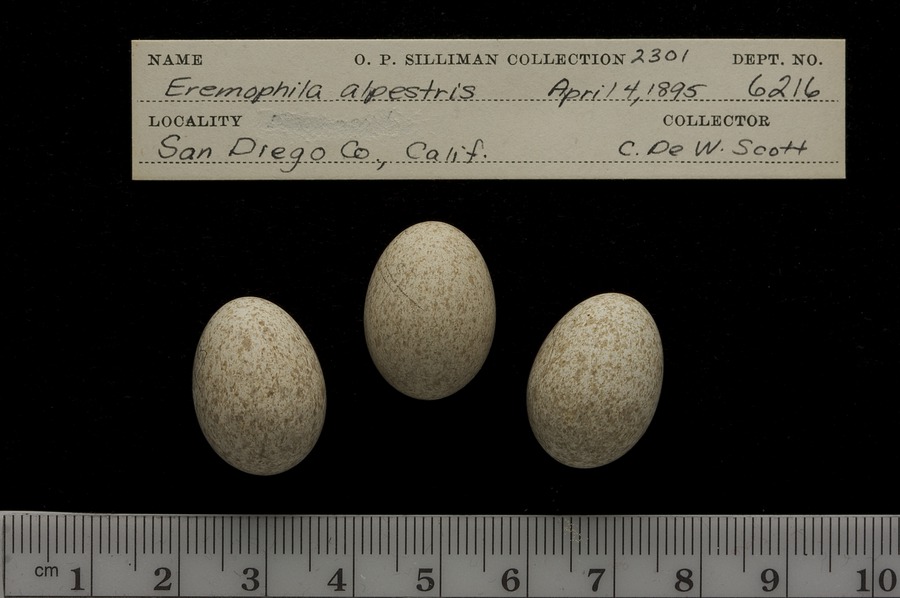 NAME O. P. SILLIMAN COLLECTION 2301 DEPT. NO.
Eremophila alpestris April 4, 1895 6216
LOCALITY COLLECTOR
San Diego Co., Calif. C. De W. Scott
cm 1 2 3 4 5 6 7 8 9 10